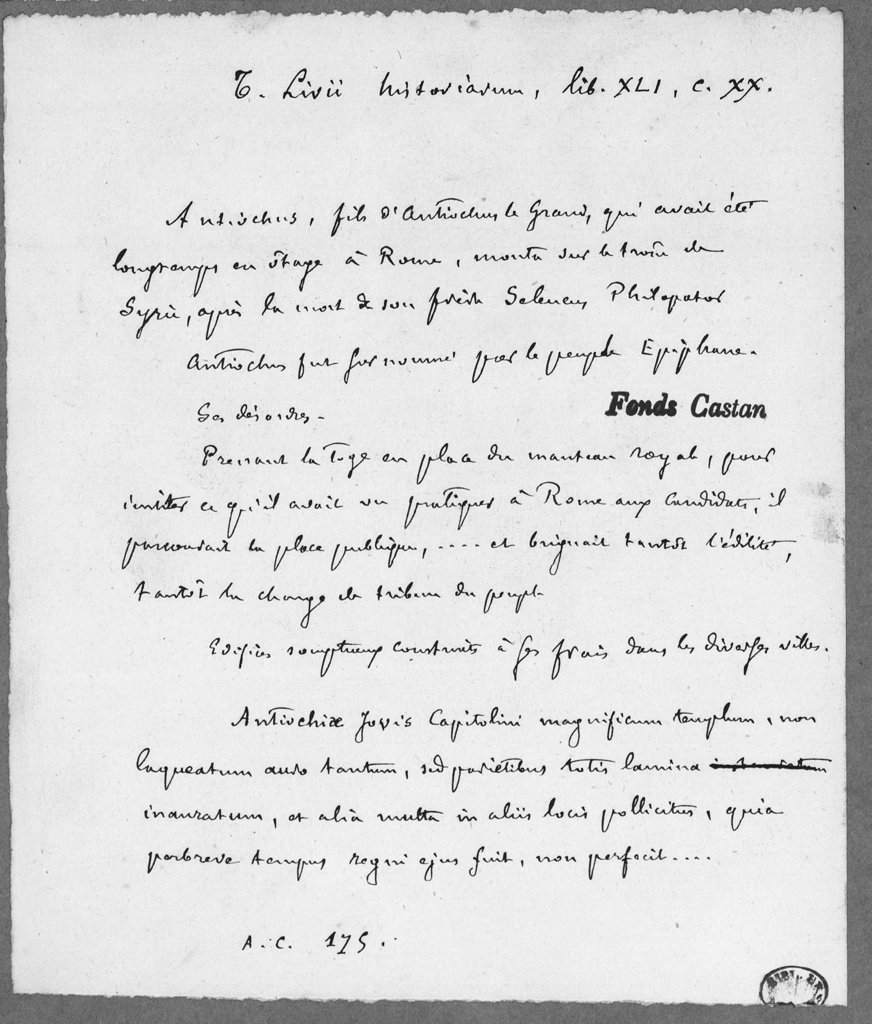 T. Livii historiarum, lib. XLI, c. XX.
Antiochus, fils d'Antiochus le Grand, qui avait été
longtemps en ôtage à Rome, monta sur le trône de
Syrie, après la mort de son frère Seleucus Philopator
Antiochus fut surnommé par le peuple Epiphane.
Ses désordres -
Fonds Castan
Prenant la toge en place du manteau royal, pour
imiter ce qu'il avait vu pratiquer à Rome aux candidats, il
parcourait la place publique, .... et briguait tantôt l'édilité,
tantôt la charge de tribun du peuple
Edifices somptueux construits à ses frais dans les diverses villes.
Antiochiæ Jovis Capitolini magnificum templum, non
laqueatum auro tantum, sed parietibus totis lamina
inauratum, et alia multa in aliis locis pollicitus, quia
perbreve tempus regni ejus fuit, non perfecit....
A. C. 175.